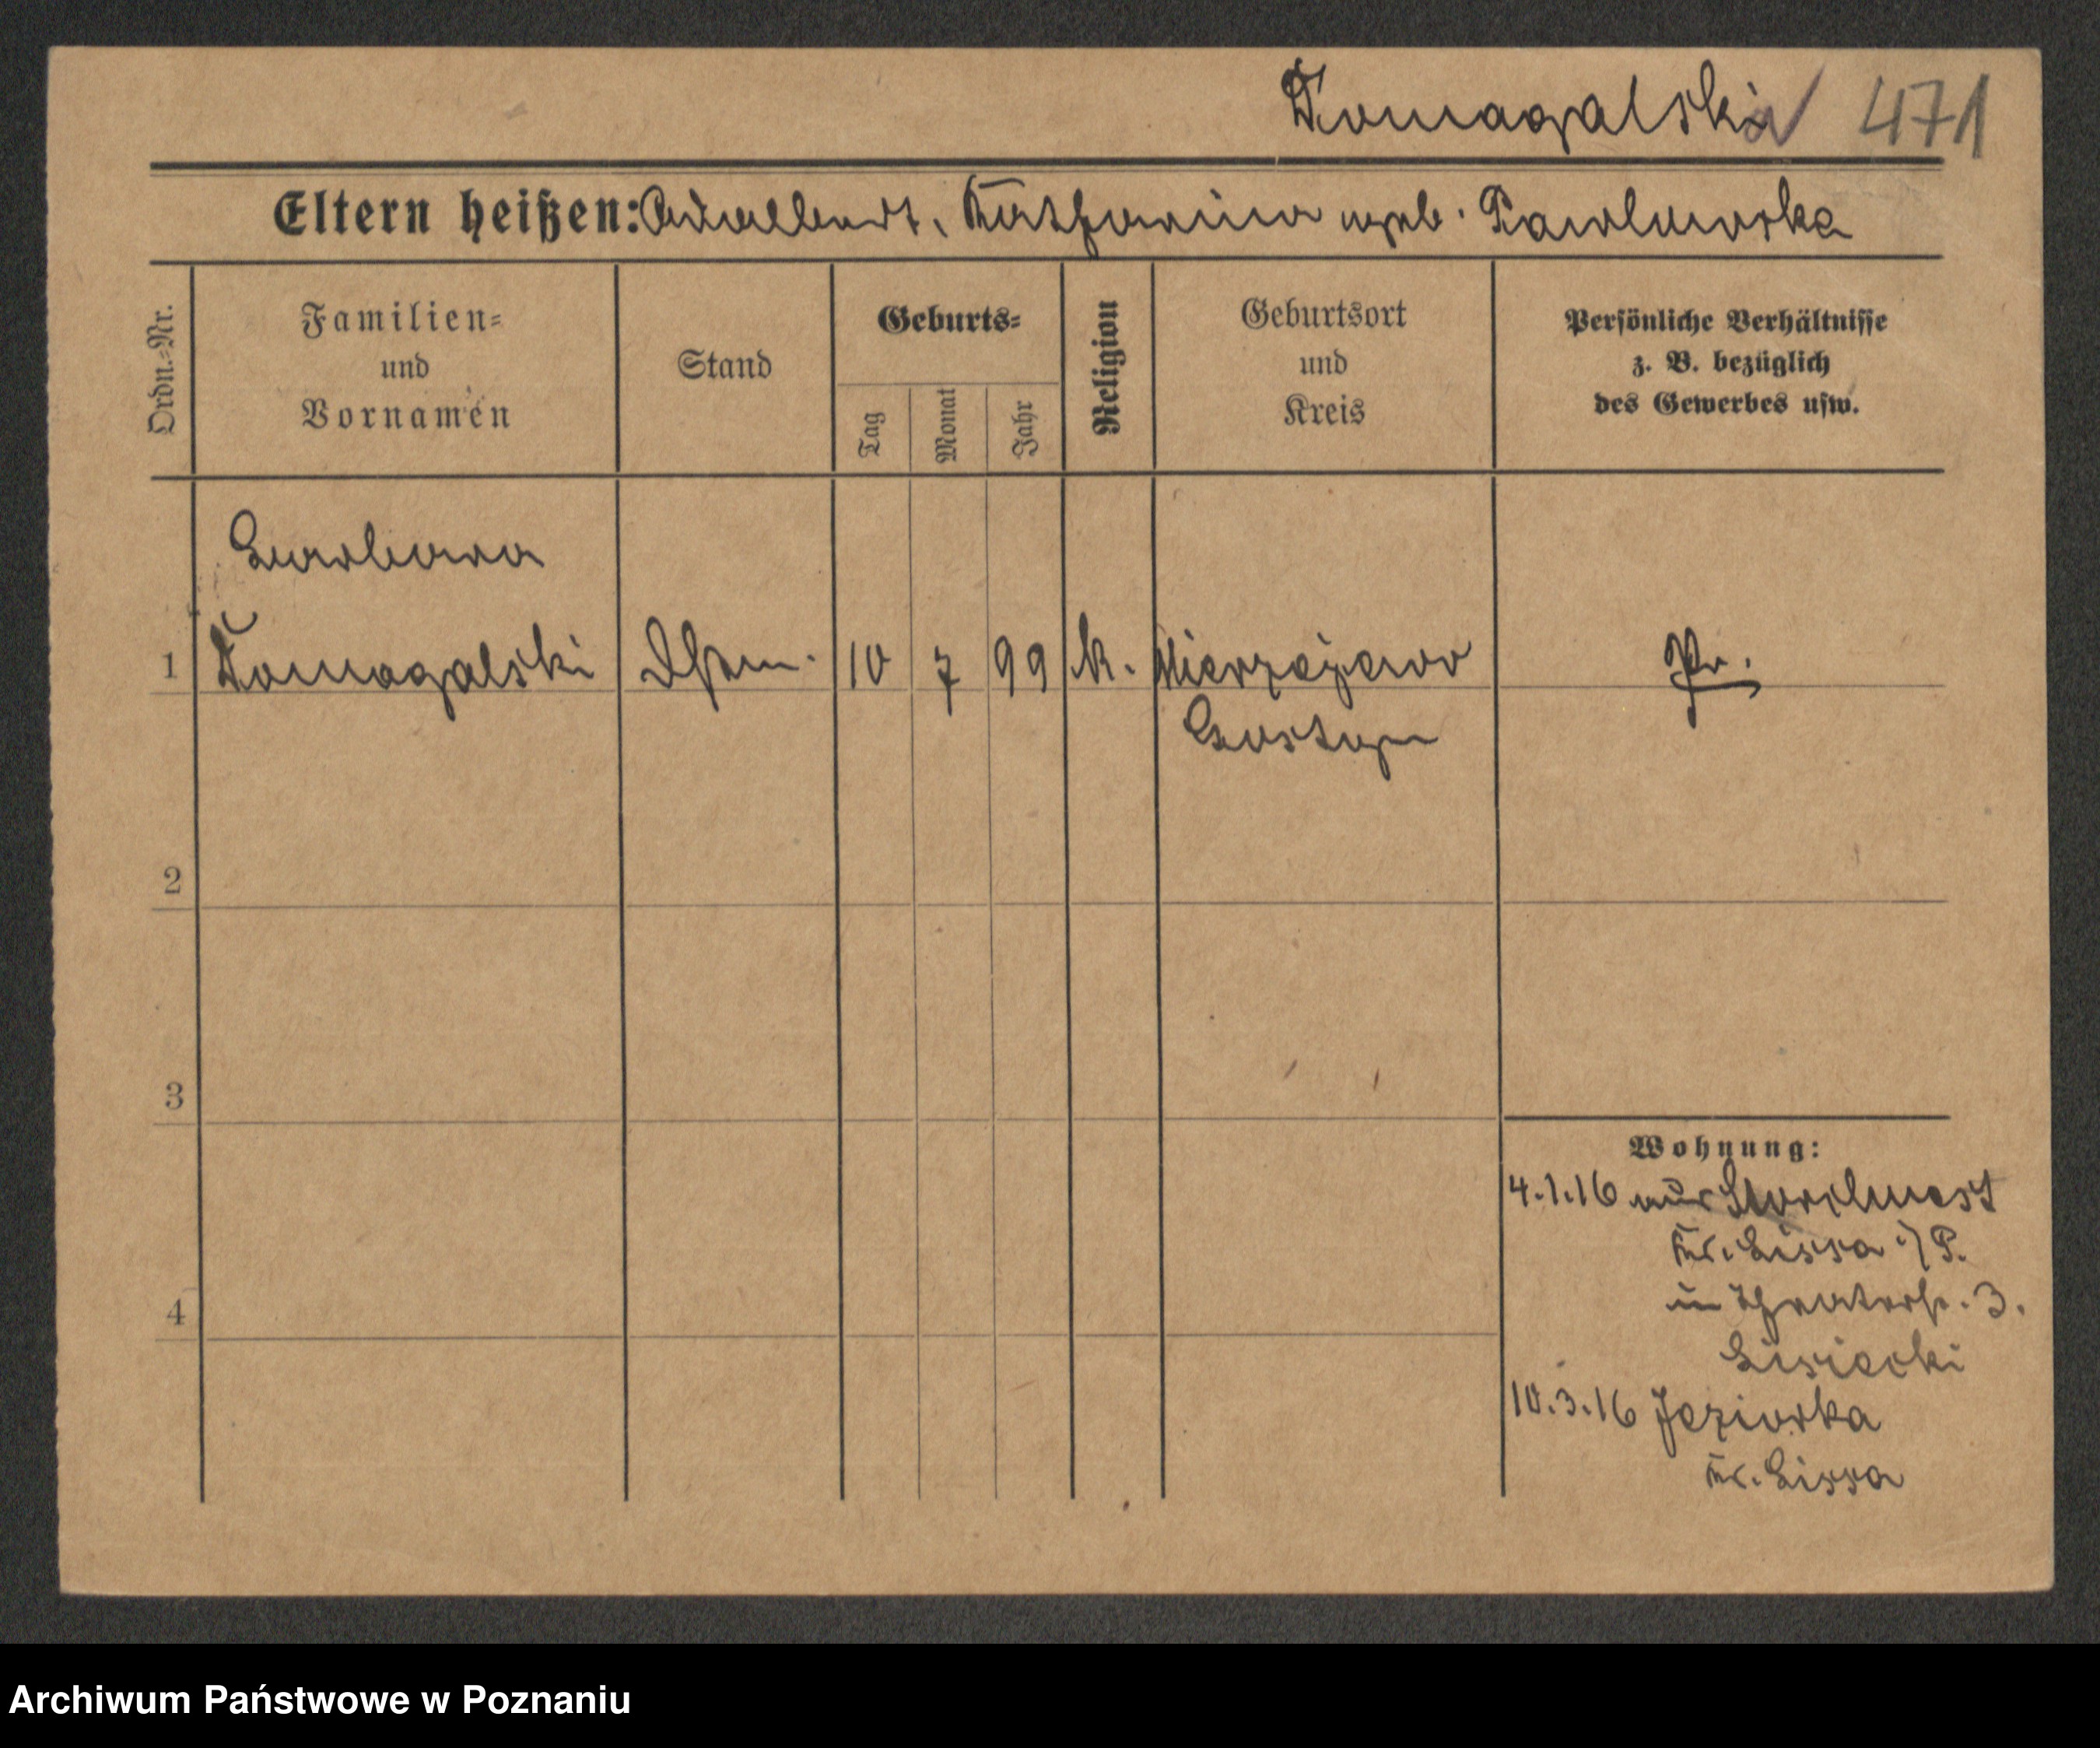 Domagalski 471
Eltern heißen: Adalbert, Katharina geb. Pawlowska
Ordn.-Nr.
Familien-
und
Vornamen
Stand
Geburts-
Tag
Monat
Jahr
Religion
Geburtsort
und
Kreis
Persönliche Verhältnisse
z. B. bezüglich
des Gewerbes usw.
Barbara
1 Domagalski 10 7 99 k. Pr.
Gostyn
2
3
4
Wohnung:
4.1.16 aus Storchnest
Kr. Lissa i/P.
in Theaterstr. 3.
Lisiecki
10.3.16 Jeziorka
Kr. Lissa
Archiwum Państwowe w Poznaniu